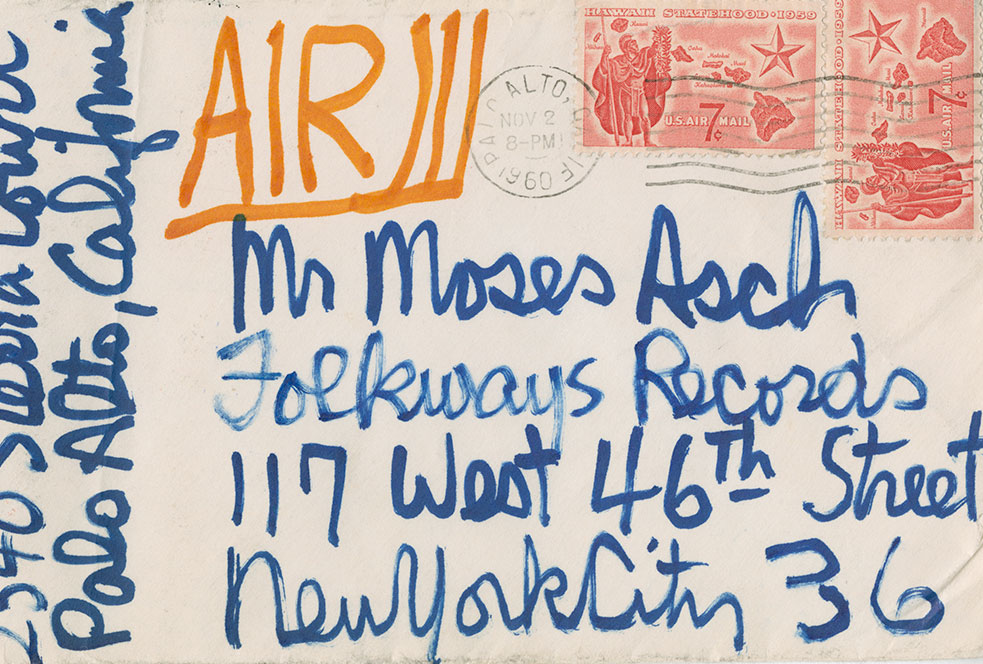 AIR
HAWAII STATEHOOD · 1959
U.S. AIR MAIL 7¢
HAWAII STATEHOOD · 1959
U.S. AIR MAIL 7¢
PALO ALTO, CALIF
NOV 2
8-PM
1960
Mr Moses Asch
Folkways Records
117 West 46Th Street
New York City 36
Palo Alto, California